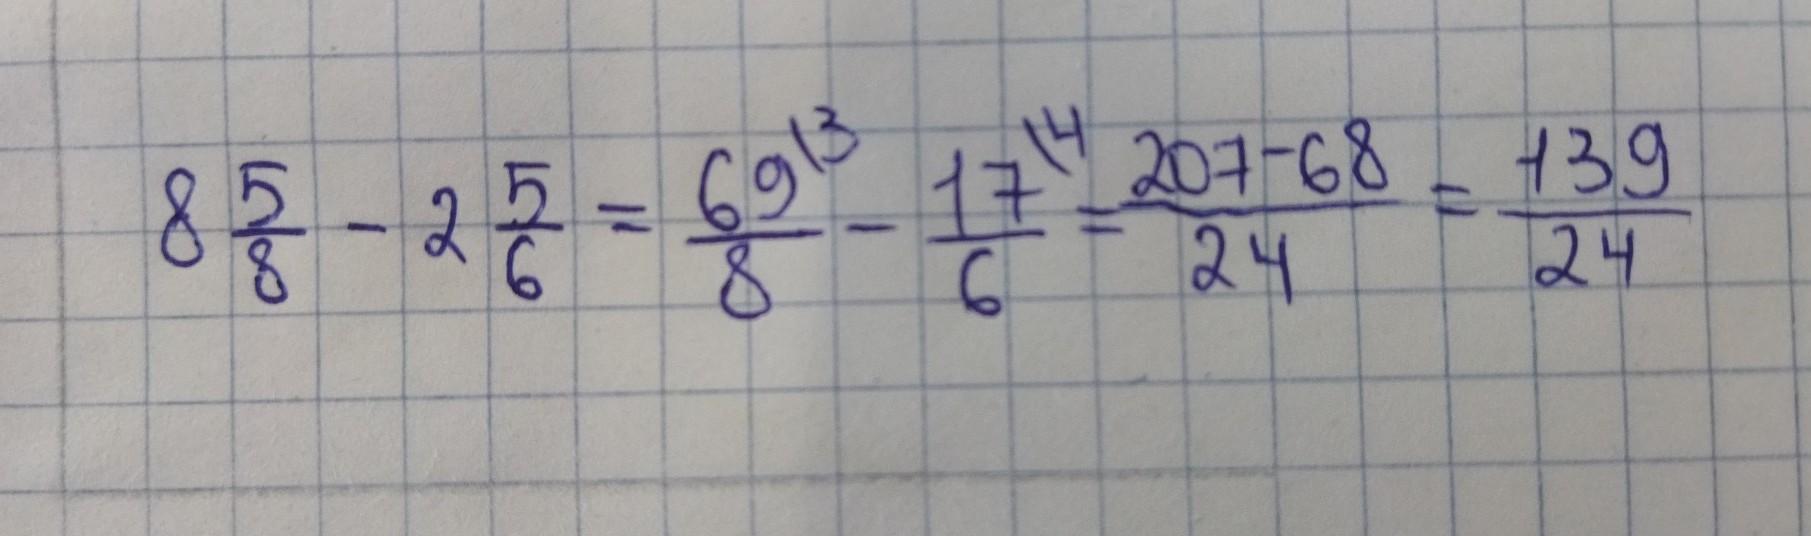 8 5/8 - 2 5/6 = 69\3/8 - 17\4/6 = 207-68/24 = 139/24